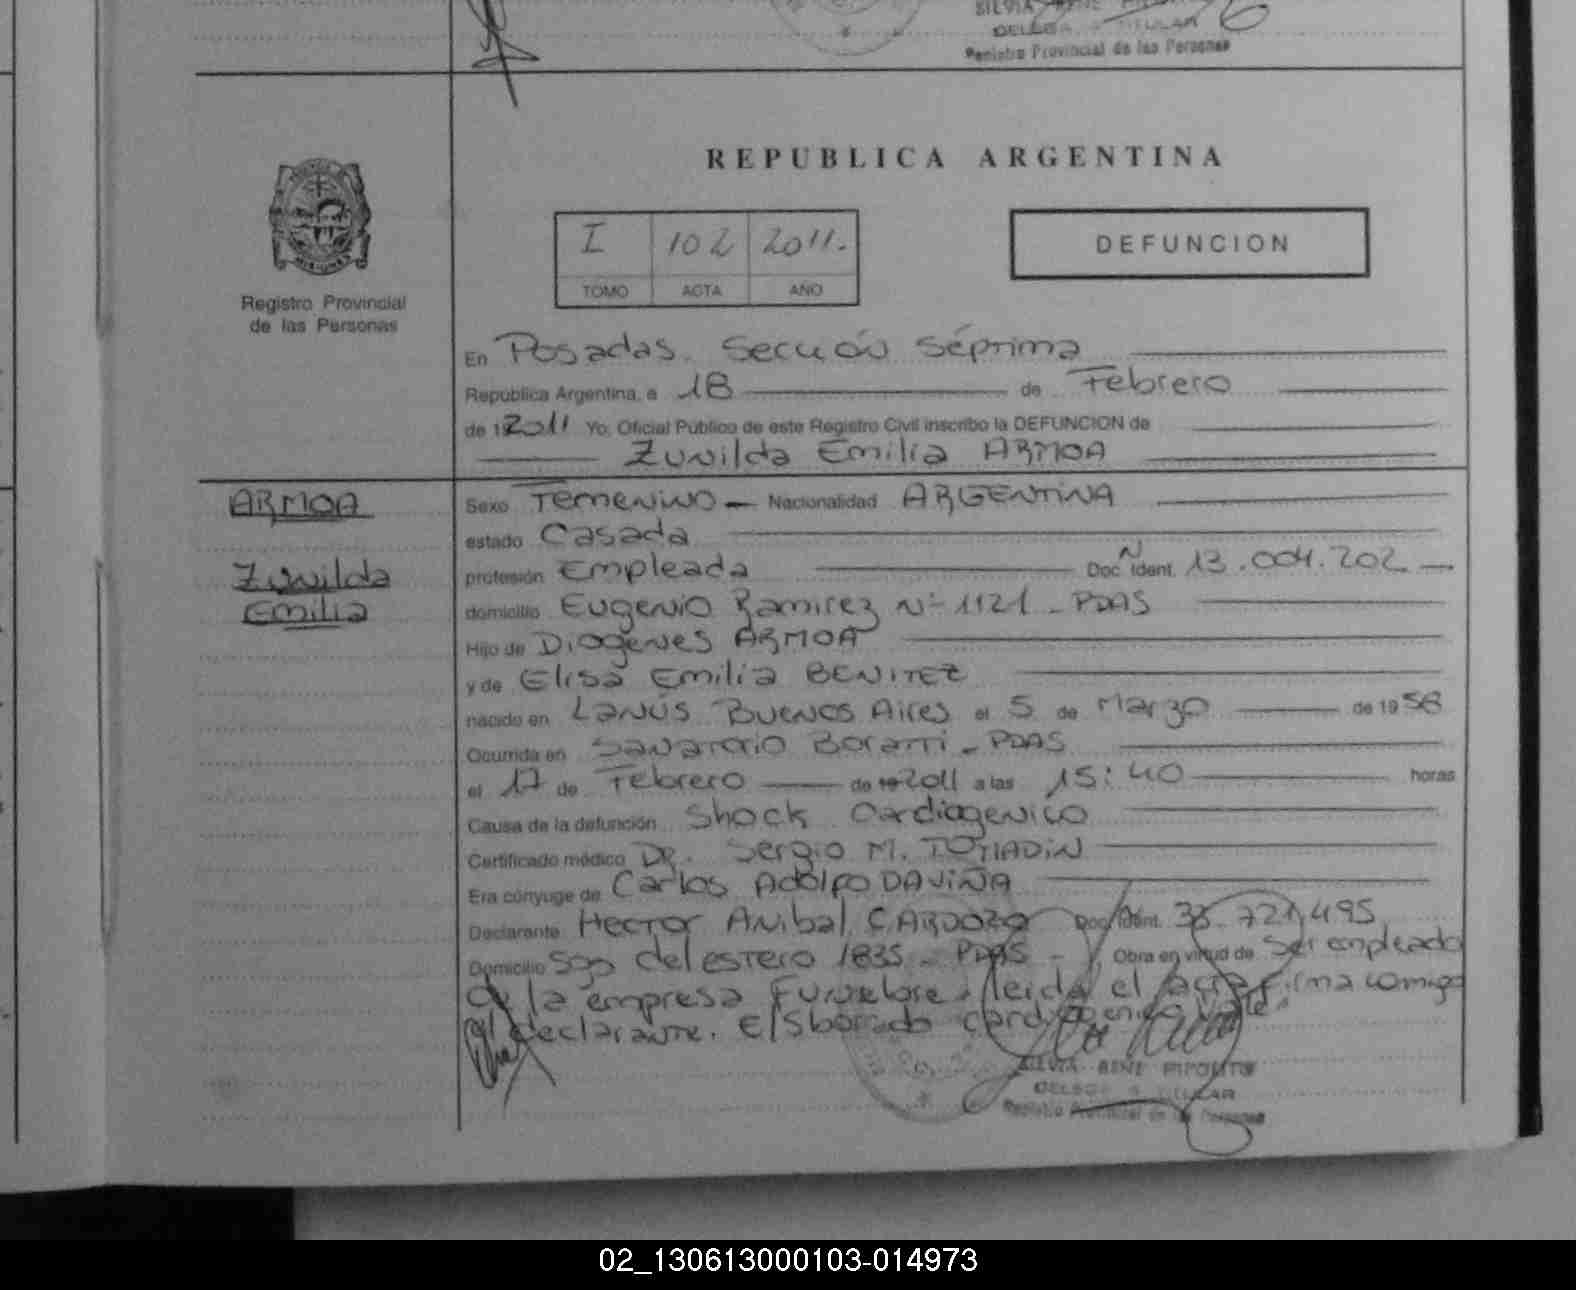 SILVIA RENE
DELEGADA TITULAR
Registro Provincial de las Personas
REPUBLICA ARGENTINA
I 102 2011.
TOMO ACTA AÑO
DEFUNCION
MISIONES
Registro Provincial
de las Personas
En Posadas. Sección Séptima
República Argentina, a 18 de Febrero
de 2011 Yo, Oficial Público de este Registro Civil inscribo la DEFUNCION de
Zunilda Emilia ARMOA
ARMOA
Zunilda
Emilia
Sexo Femenino - Nacionalidad ARGENTINA
estado Casada
profesión Empleada Doc. N Ident. 13.004.202
domicilio Eugenio Ramirez Nº 1121 - PDAS
Hijo de Diogenes ARMOA
y de Elisa Emilia BENITEZ
nacido en Lanus Buenos Aires el 5 de Marzo de 1958
Ocurrida en Sanatorio Boratti - PDAS
el 17 de Febrero de 2011 a las 15:40 horas
Causa de la defunción Shock Cardiogenico
Certificado médico DR. Sergio M. TOMADIN
Era cónyuge de Carlos Adolfo DAVIÑA
Declarante Hector Anibal CARDOZO Doc. Ident. 721.495
Domicilio Sgo del estero 1835 - PDAS - Obra en virtud de ser empleado
de la empresa Funebre. leida el acta firma comigo
el declarante. El Sborrado cardiogenico Vale"
SILVIA RENE RIPOLITO
DELEGADA TITULAR
Registro Provincial de las Personas
02_130613000103-014973